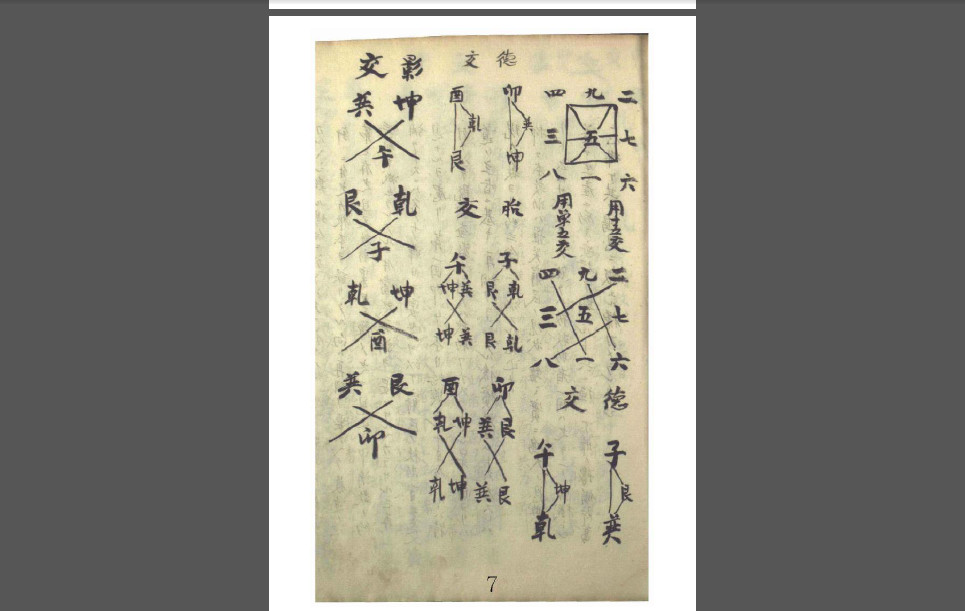 二 九 四
七 五 三
六 一 八
用十五交
用單五交
二 九 四
七 五 三
六 一 八
德交
子 艮 巽
午 坤 乾
德交
卯 巽 坤
酉 乾 艮
胎交
子
乾 艮
乾 艮
午
巽 坤
巽 坤
卯
艮 巽
艮 巽
酉
坤 乾
坤 乾
影交
坤 巽
午
乾 艮
子
坤 乾
酉
艮 巽
卯
7